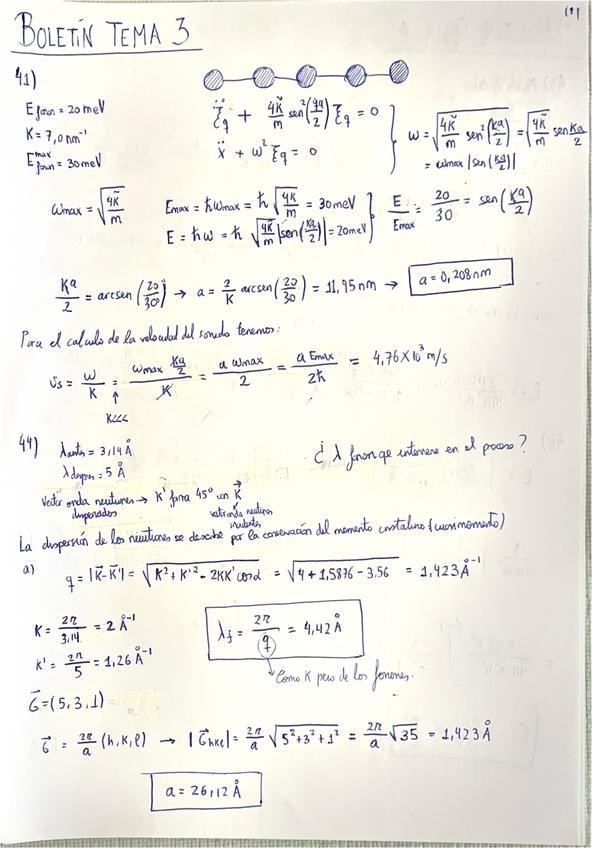 (1)
BOLETÍN TEMA 3
41)
E fonon = 20 meV
K = 7,0 nm⁻¹
E^max fonon = 30 meV
ξ̈_q + 4K̃/m sen²(qa/2) ξ_q = 0
ẍ + ω² ξ_q = 0
ω = √(4K̃/m sen²(Ka/2)) = √(4K̃/m) sen Ka/2
= ωmax |sen(Ka/2)|
ωmax = √(4K̃/m)
Emax = ħωmax = ħ √(4K̃/m) = 30 meV
E = ħω = ħ √(4K̃/m) |sen(Ka/2)| = 20 meV
E/Emax = 20/30 = sen(Ka/2)
Ka/2 = arcsen(20/30) → a = 2/K arcsen(20/30) = 11,95 nm → a = 0,208 nm
Para el calculo de la velocidad del sonido tenemos:
v_s = ω/K = ωmax Ka/2 / K = a ωmax/2 = a Emax/2ħ = 4,76 × 10³ m/s
K<<<
44)
λ antes = 3,14 Å
λ despues = 5 Å
¿ λ fonon qe interviene en el proceso?
Vector onda neutrones dispersados → K' forma 45° con K⃗
vector onda neutrones incidentes
La dispersión de los neutrones se describe por la conservación del momento cristalino (cuasimomento)
a)
q = |K⃗ - K⃗'| = √(K² + K'² - 2KK' cos α) = √(4 + 1,5876 - 3,56) = 1,423 Å⁻¹
K = 2π/3,14 = 2 Å⁻¹
K' = 2π/5 = 1,26 Å⁻¹
λ_f = 2π/q = 4,42 Å
Como K pero de los fonones.
G⃗ = (5, 3, 1)
G⃗ = 2π/a (h, K, l) → |G⃗hkl| = 2π/a √(5² + 3² + 1²) = 2π/a √35 = 1,423 Å
a = 26,12 Å